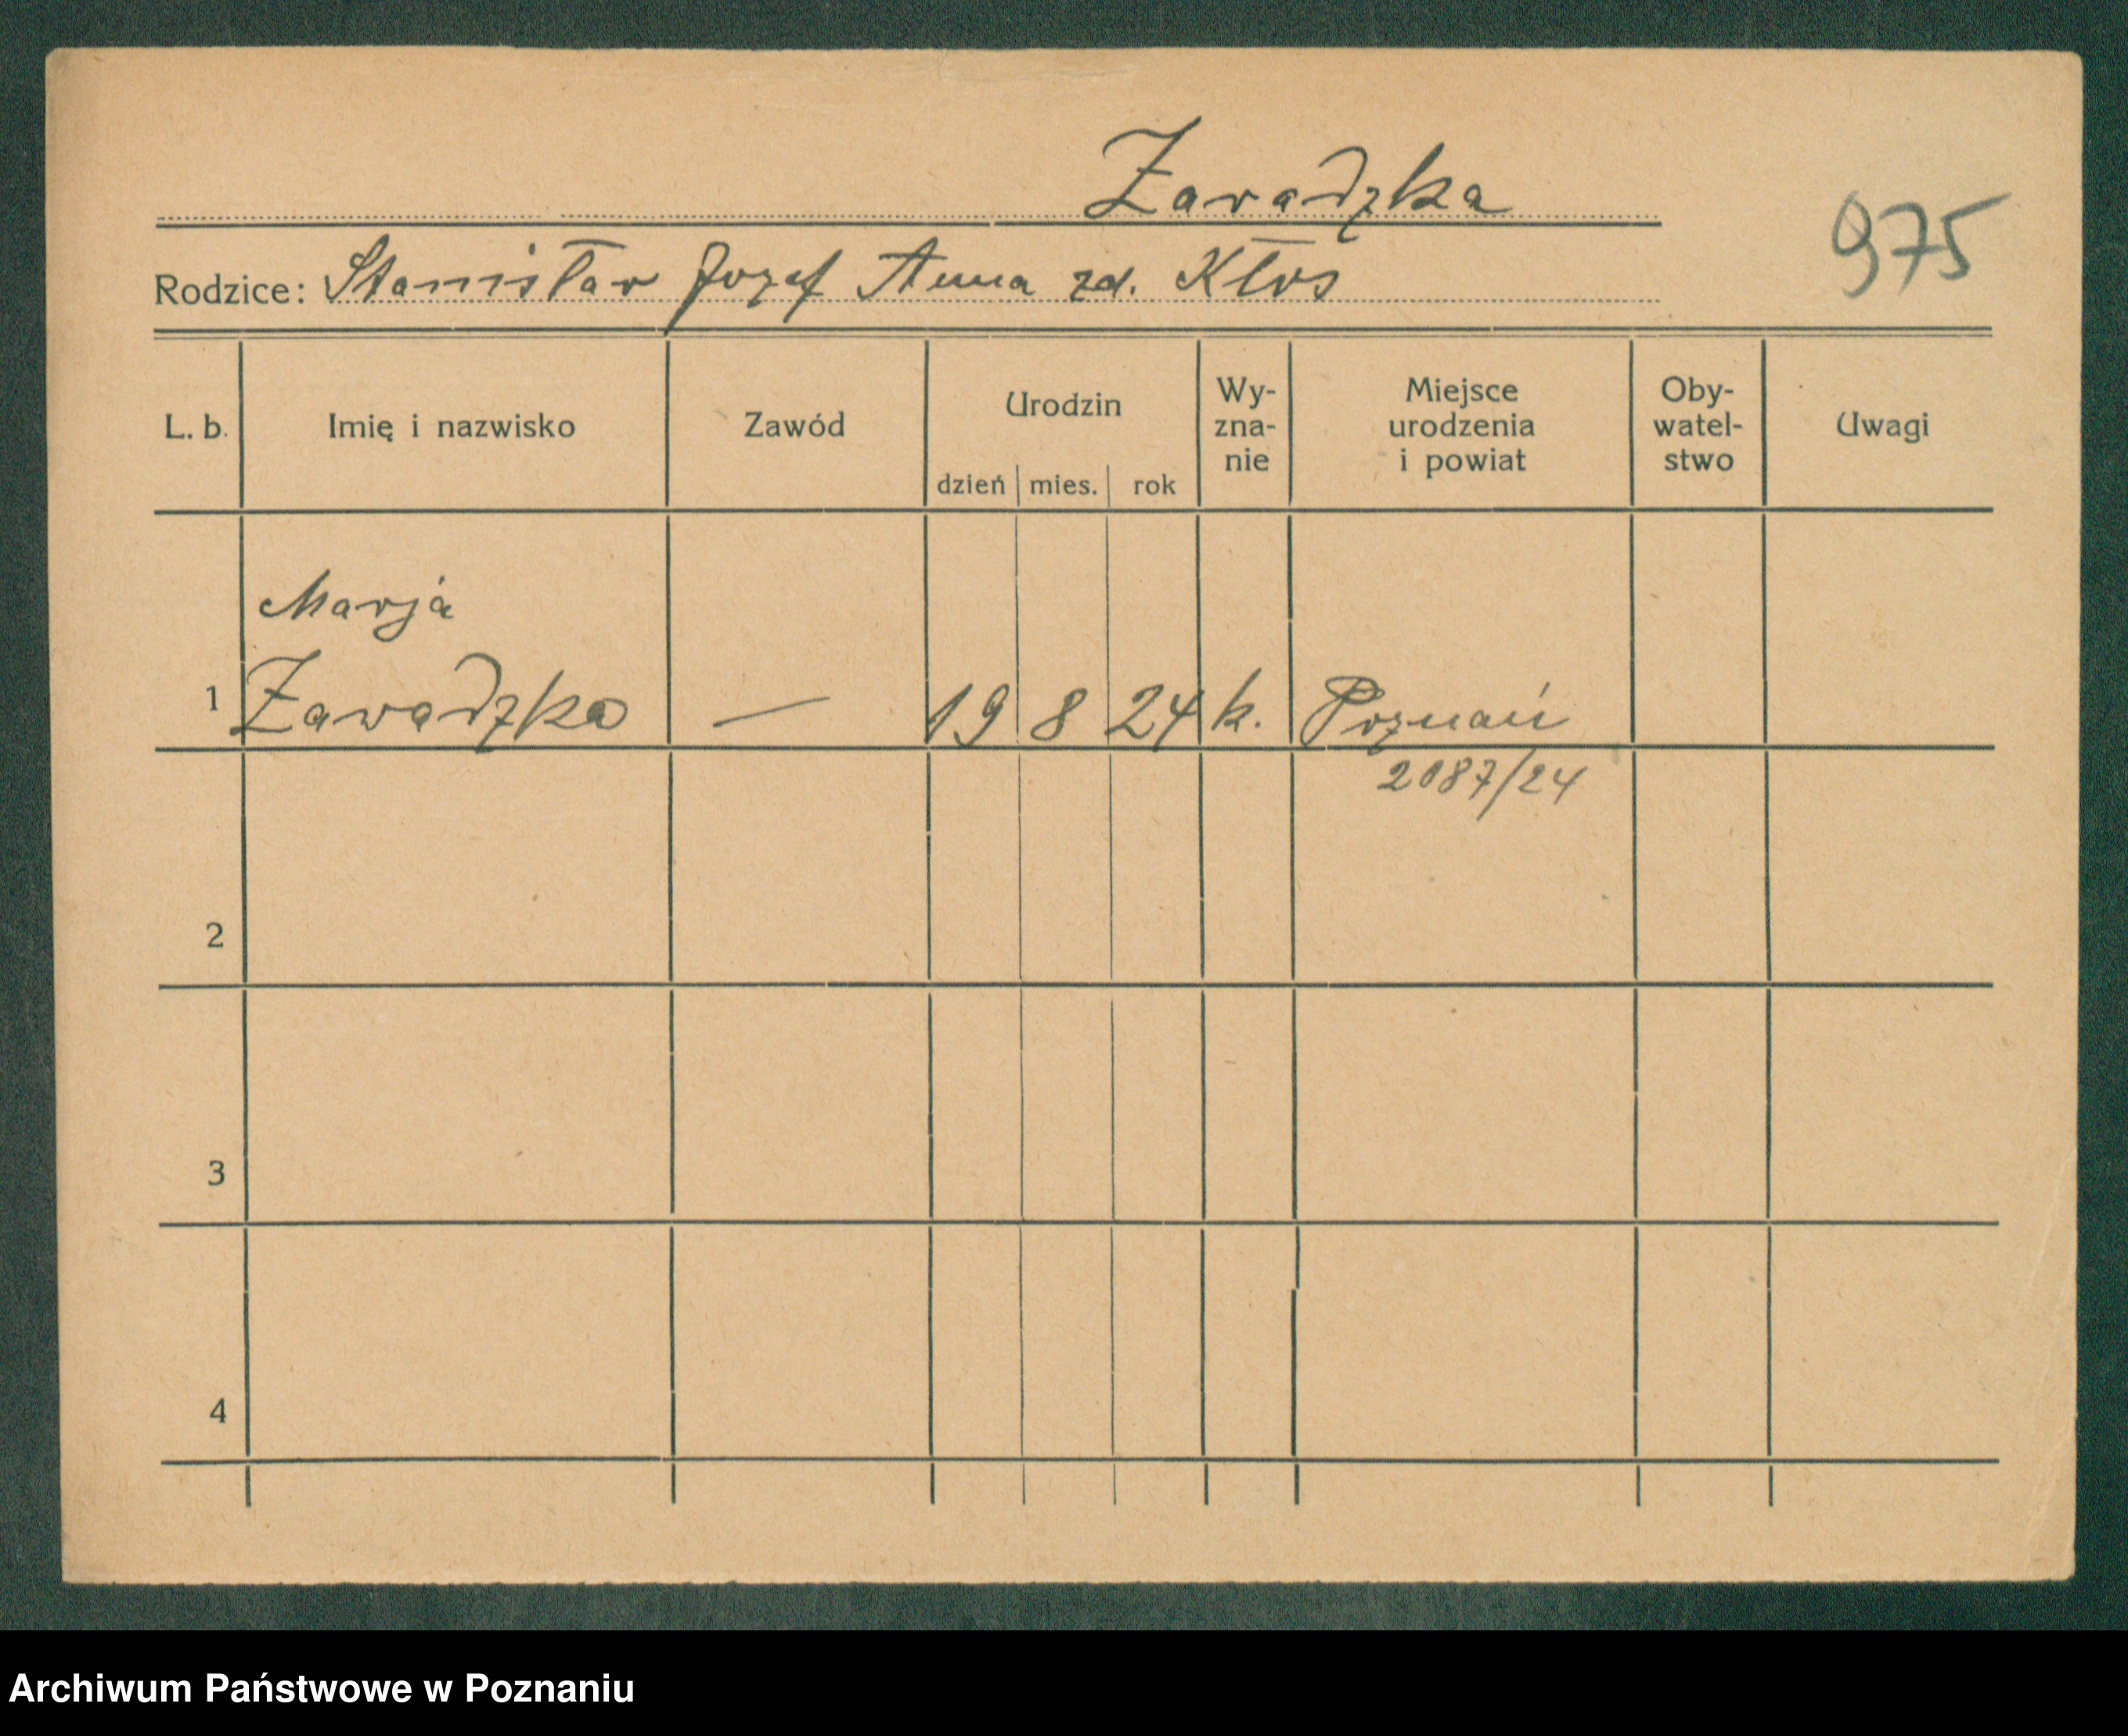 Zawadzka
975
Rodzice: Stanisław Józef Anna zd. Kłos
L. b. Imię i nazwisko Zawód Urodzin dzień mies. rok Wy-zna-nie Miejsce urodzenia i powiat Oby-watel-stwo Uwagi
Marja
1 Zawadzka — 19 8 24 k. Poznań
2087/24
2
3
4
Archiwum Państwowe w Poznaniu